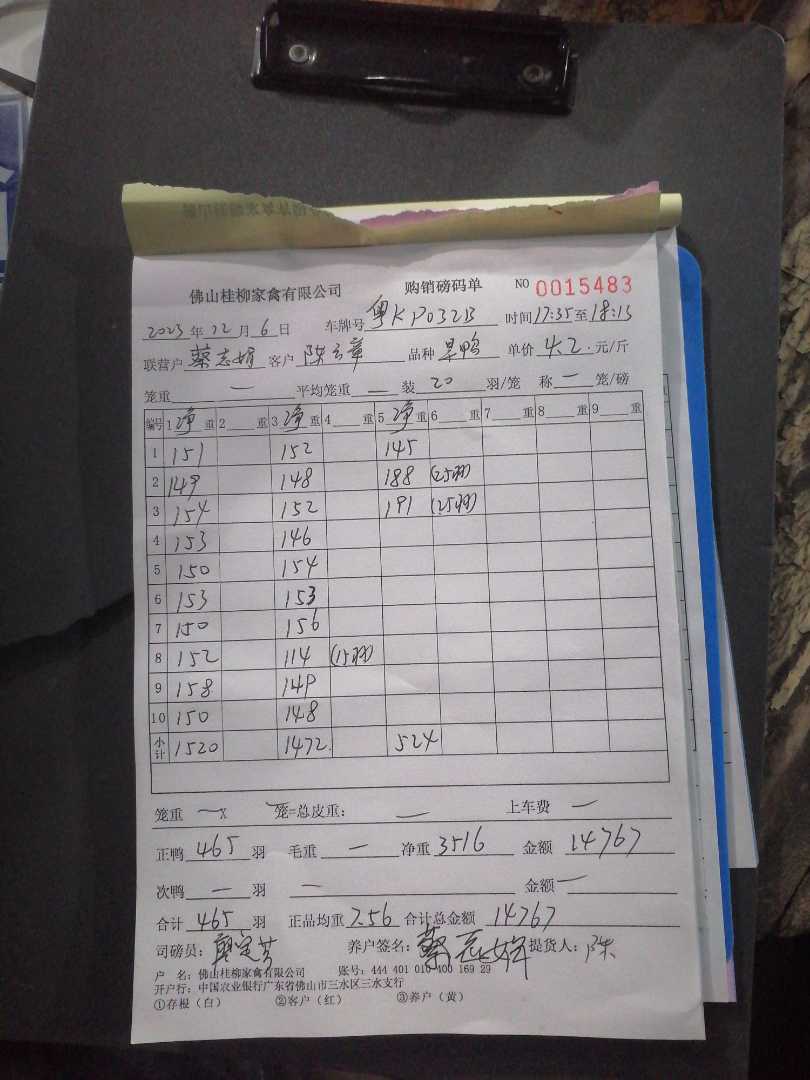 佛山桂柳家禽有限公司 购销磅码单 NO 0015483
2023年12月6日 车牌号 粤KP032B 时间17:35至18:13
联营户 蔡志娟 客户 陈云章 品种 旱鸭 单价 4.2.元/斤
笼重 — 平均笼重 — 装 20 羽/笼 称 — 笼/磅
编号 1净重 2 重 3净重 4 重 5净重 6 重 7 重 8 重 9 重
1 151 152 145
2 149 148 188 (25羽)
3 154 152 191 (25羽)
4 153 146
5 150 154
6 153 153
7 150 156
8 152 114 (15羽)
9 158 149
10 150 148
小计 1520 1472. 524
笼重 — X 笼=总皮重: — 上车费 —
正鸭 465 羽 毛重 — 净重 3516 金额 14767
次鸭 — 羽 — 金额 —
合计 465 羽 正品均重 7.56 合计总金额 14767
司磅员: 养户签名: 蔡志娟 提货人: 陈
户 名: 佛山桂柳家禽有限公司 账号: 444 401 010 400 169 29
开户行: 中国农业银行广东省佛山市三水区三水支行
①存根(白) ②客户(红) ③养户(黄)